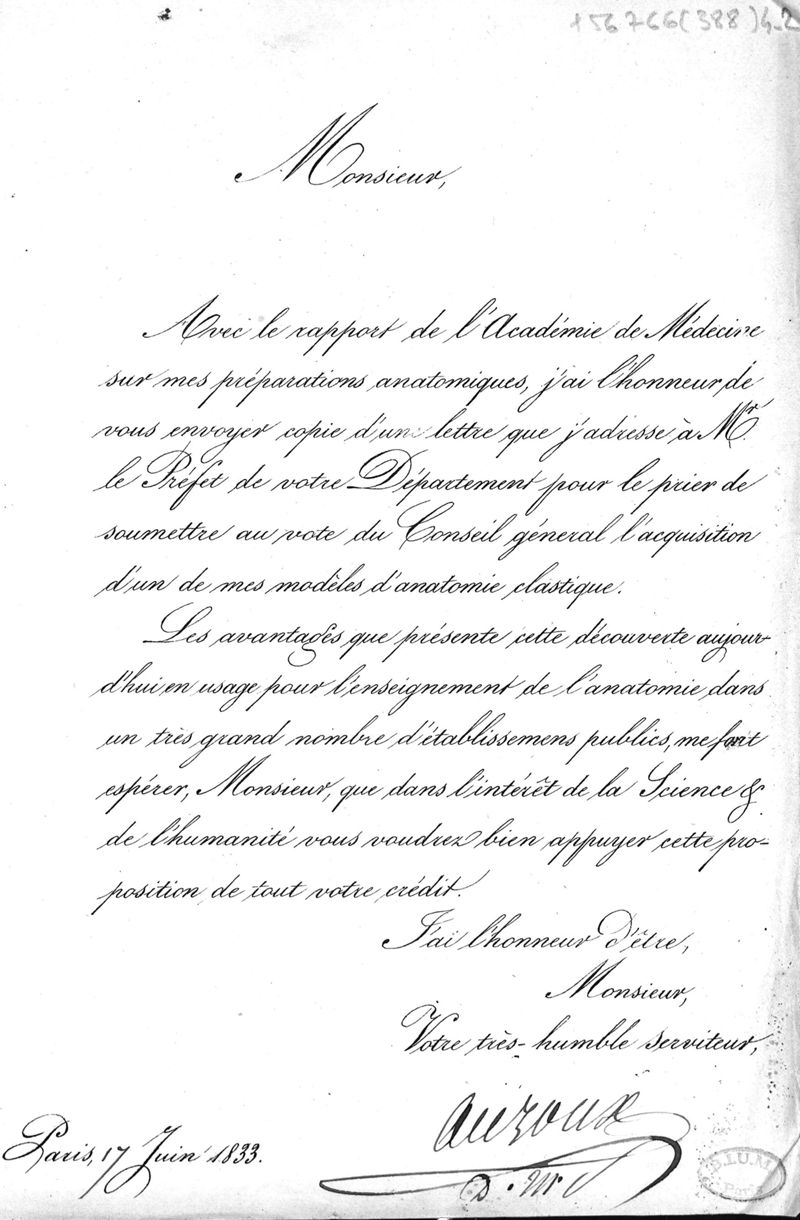 156766(388)4-2
Monsieur,
Avec le rapport de l'Académie de Médecine
sur mes préparations anatomiques, j'ai l'honneur de
vous envoyer copie d'une lettre que j'adresse à Mr.
le Préfet de votre Département pour le prier de
soumettre au vote du Conseil géneral l'acquisition
d'un de mes modèles d'anatomie clastique.
Les avantages que présente cette découverte aujour-
d'hui en usage pour l'enseignement de l'anatomie dans
un très grand nombre d'établissemens publics, me font
espérer, Monsieur, que dans l'intérêt de la Science &
de l'humanité vous voudrez bien appuyer cette pro-
position de tout votre crédit.
J'ai l'honneur d'être,
Monsieur,
Votre très-humble serviteur,
Auzoux
D. M.
Paris, 17 Juin 1833.
B.I.U.M.
Paris